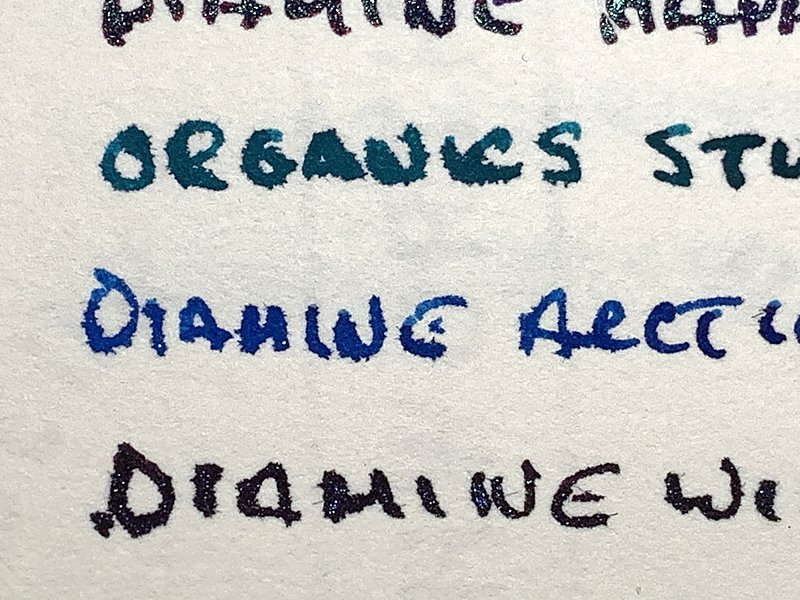 DIAMINE
ORGANICS STU
DIAMINE ARCTIC
DIAMINE WI